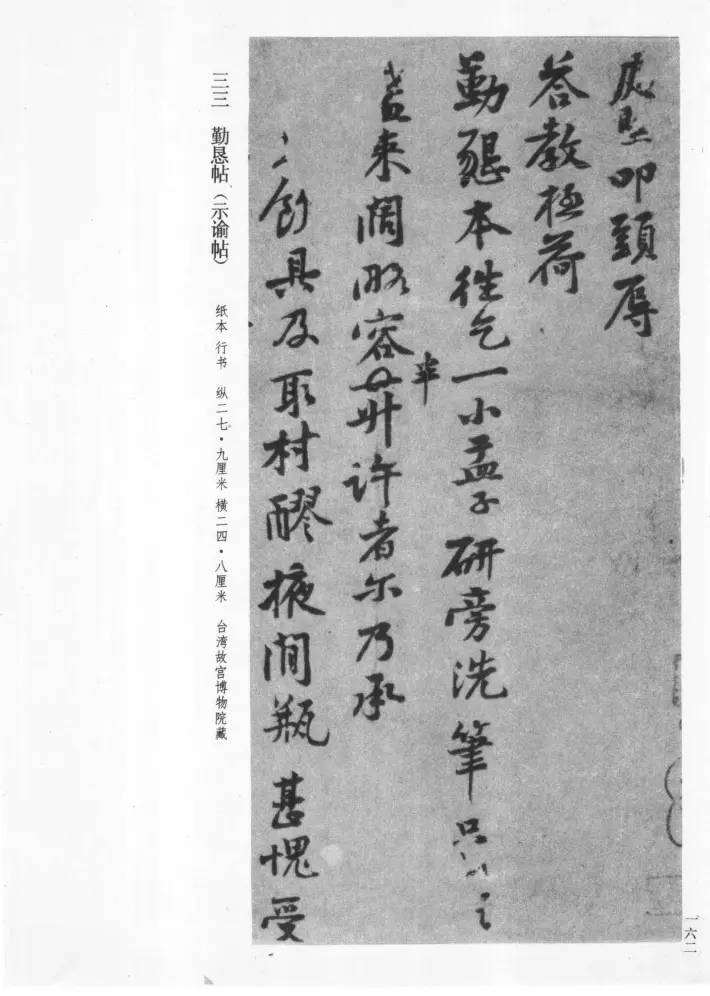 庭堅叩頭辱
答教極荷
勤懇本往乞一小盂子研旁洗筆只
來闊略容半升許者尔乃承
創具及取村醪掖間瓶甚愧受
三三 勤恳帖（示谕帖）
纸本 行书 纵二七·九厘米 横二四·八厘米 台湾故宫博物院藏
一六二